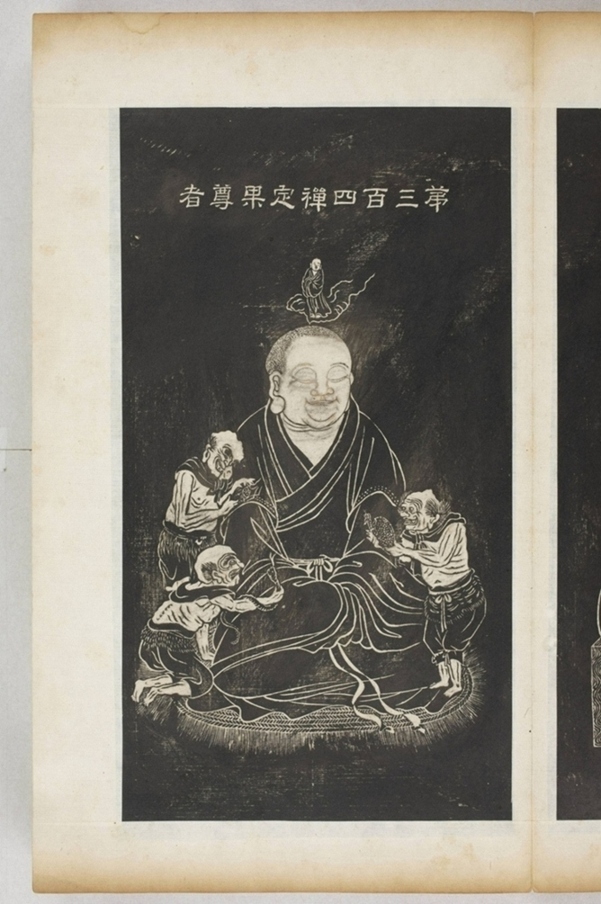 苐三百四禪定果尊者